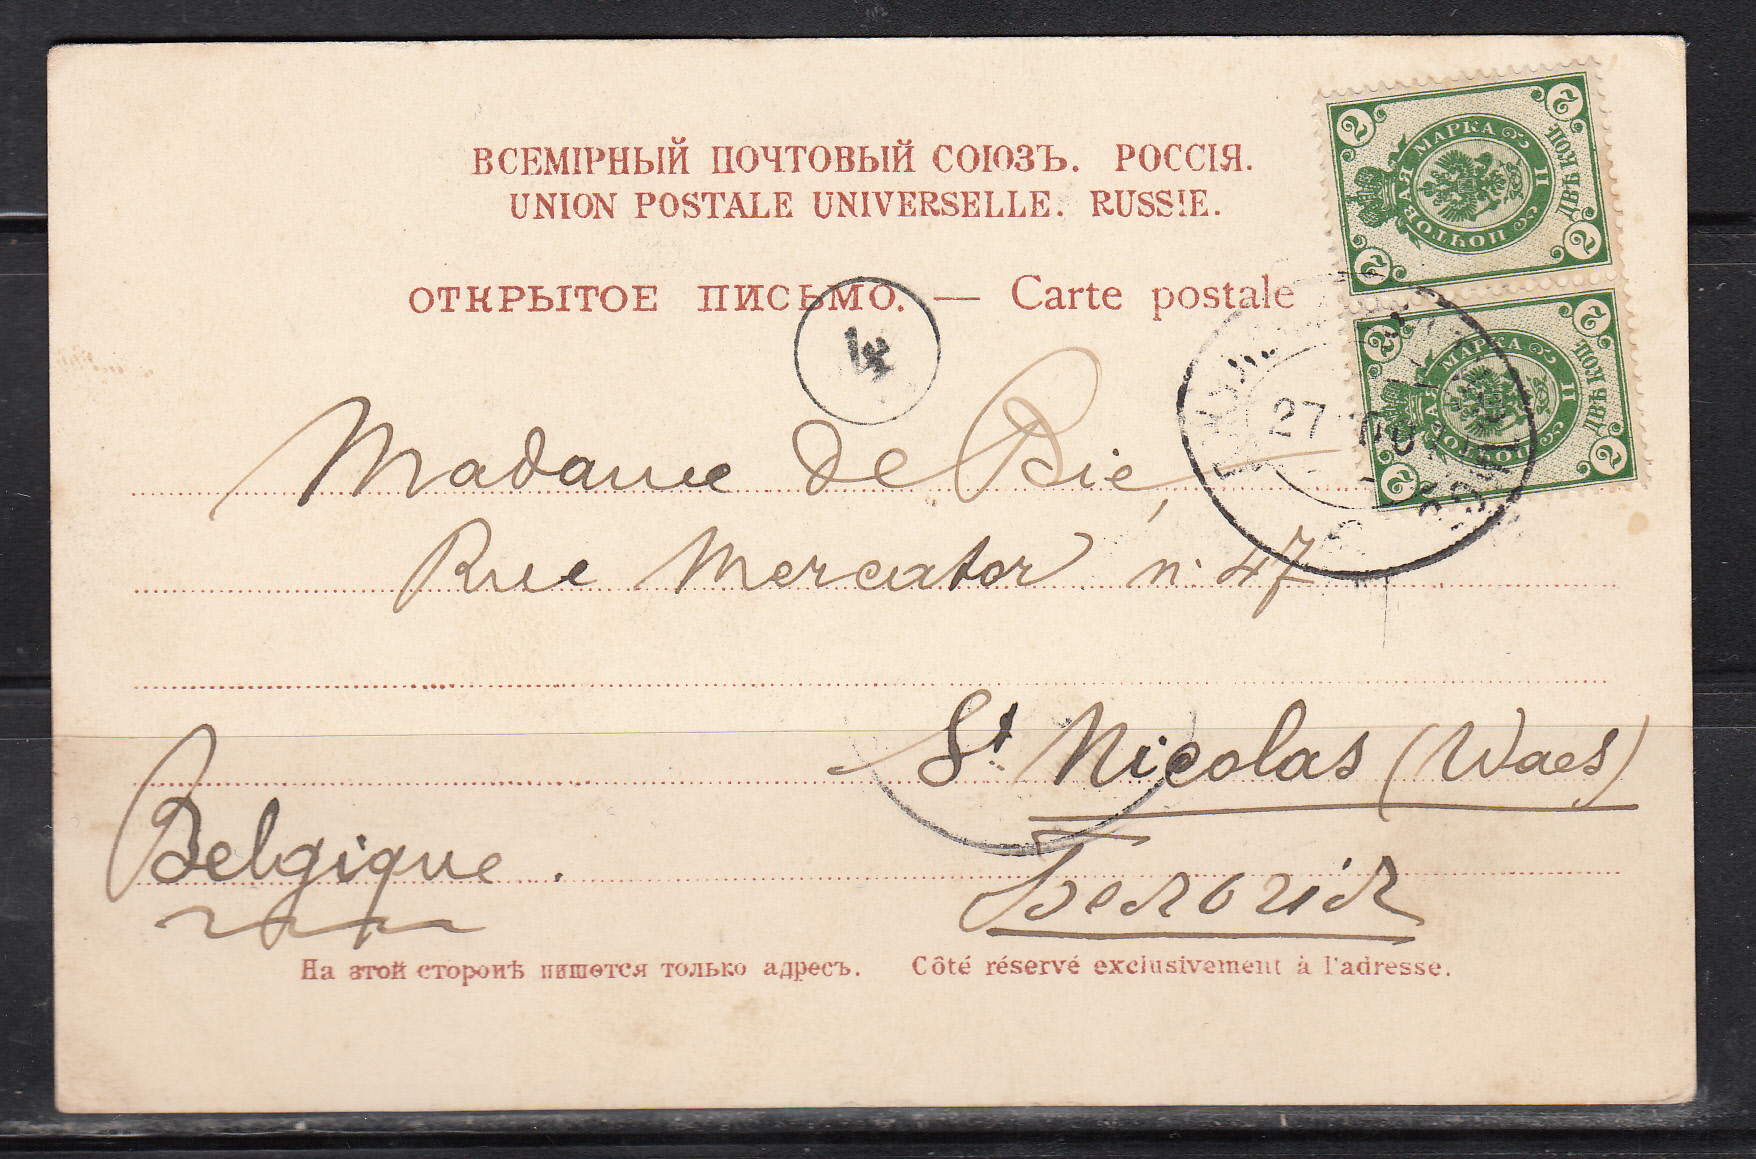 ВСЕМІРНЫЙ ПОЧТОВЫЙ СОЮЗЪ. РОССІЯ.
UNION POSTALE UNIVERSELLE. RUSSIE.
ОТКРЫТОЕ ПИСЬМО. — Carte postale
4
2 2 2 2
ПОЧТОВАЯ МАРКА
ДВѢ КОП.
2 2 2 2
ПОЧТОВАЯ МАРКА
ДВѢ КОП.
27
Madame de Bie,
Rue Mercator n. 47
St Nicolas (Waes)
Belgique.
Белгія
На этой сторонѣ пишется только адресъ. Côté réservé exclusivement à l'adresse.